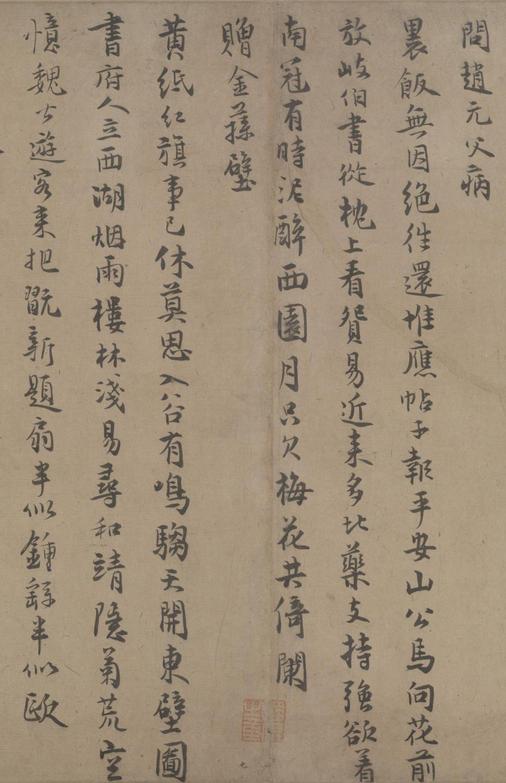 問趙元父病
裹飯無因絶往還惟應帖子報平安山公馬向花前
放岐伯書從枕上看貿易近来多比藥支持強欲着
南冠有時泥醉西園月只欠梅花共倚闌
贈金蓀璧
黄紙紅旗事已休莫思入谷有鳴騶天開東壁圖
書府人立西湖烟雨樓林淺易尋和靖隱菊荒空
憶魏公遊客来把翫新題扇半似鍾繇半似歐